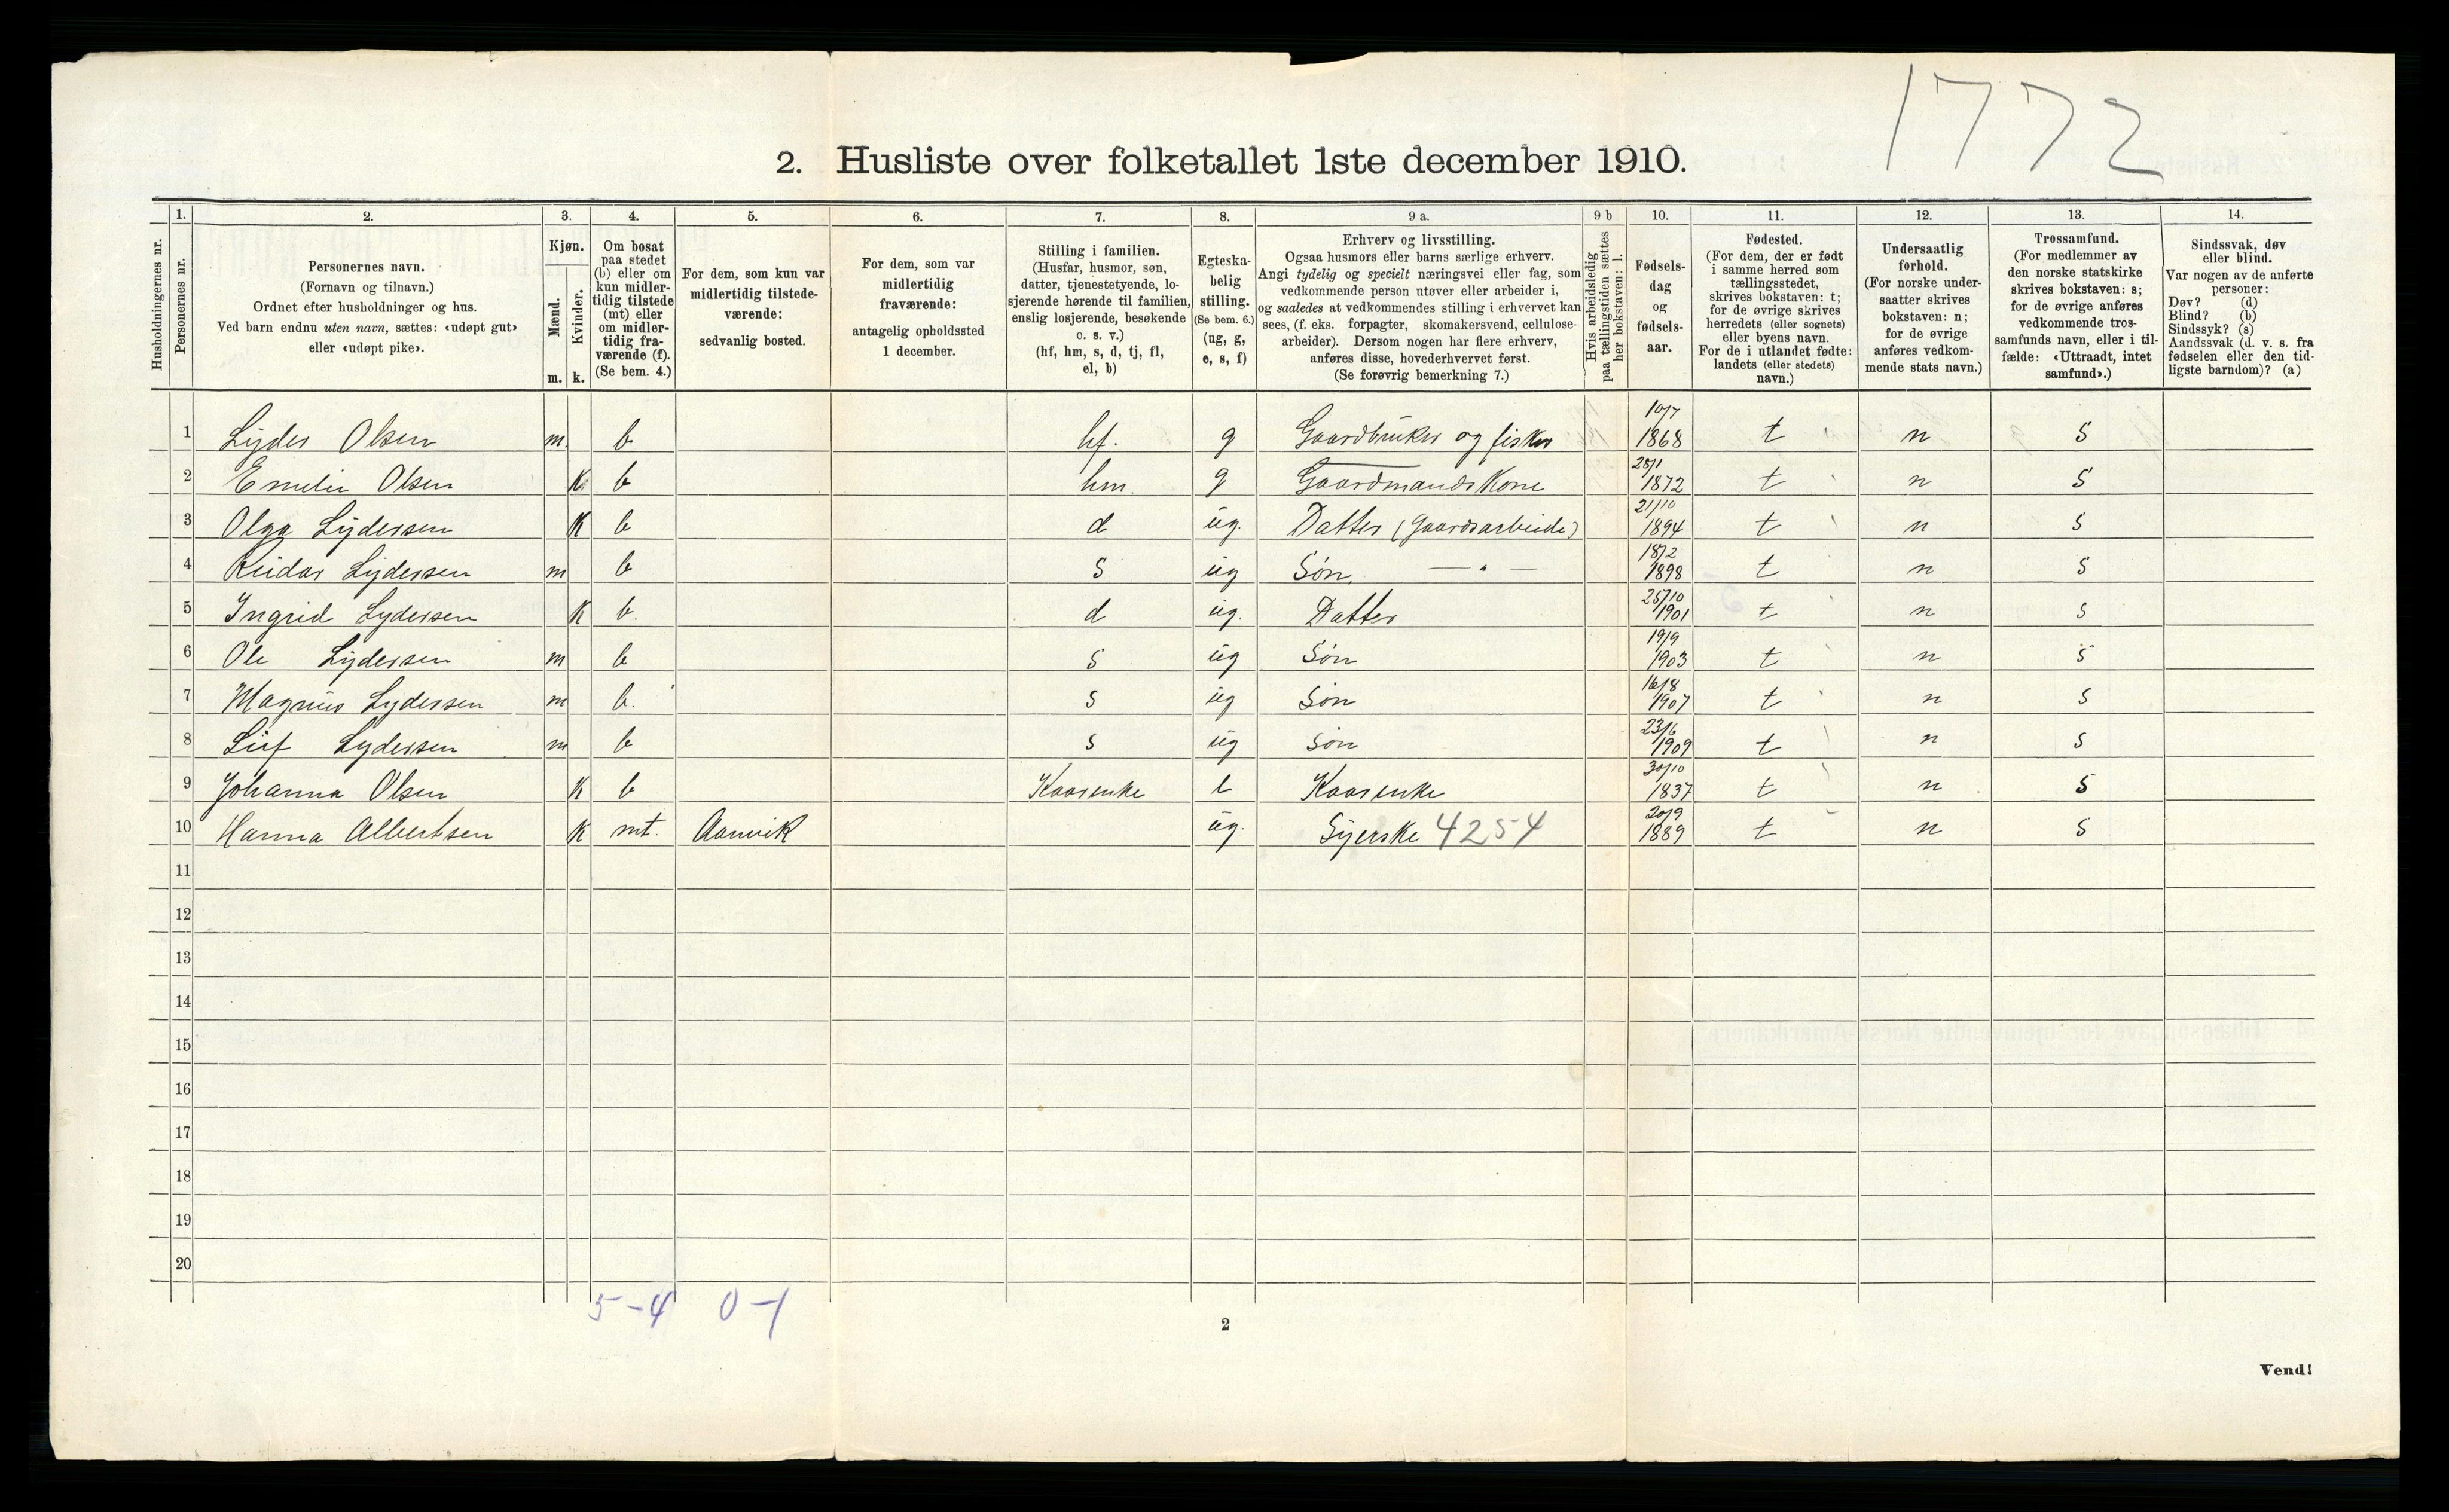 1772
2. Husliste over folketallet 1ste december 1910.
Husholdningernes nr.
1. Personernes nr.
2. Personernes navn. (Fornavn og tilnavn.) Ordnet efter husholdninger og hus. Ved barn endnu uten navn, sættes: «udøpt gut» eller «udøpt pike».
3. Kjøn. Mænd. m. Kvinder. k.
4. Om bosat paa stedet (b) eller om kun midlertidig tilstede (mt) eller om midlertidig fraværende (f). (Se bem. 4.)
5. For dem, som kun var midlertidig tilstedeværende: sedvanlig bosted.
6. For dem, som var midlertidig fraværende: antagelig opholdssted 1 december.
7. Stilling i familien. (Husfar, husmor, søn, datter, tjenestetyende, losjerende hørende til familien, enslig losjerende, besøkende o. s. v.) (hf, hm, s, d, tj, fl, el, b)
8. Egteskabelig stilling. (Se bem. 6.) (ug, g, e, s, f)
9 a. Erhverv og livsstilling. Ogsaa husmors eller barns særlige erhverv. Angi tydelig og specielt næringsvei eller fag, som vedkommende person utøver eller arbeider i, og saaledes at vedkommendes stilling i erhvervet kan sees, (f. eks. forpagter, skomakersvend, cellulosearbeider). Dersom nogen har flere erhverv, anføres disse, hovederhvervet først. (Se forøvrig bemerkning 7.)
9 b Hvis arbeidsledig paa tællingstiden sættes her bokstaven: l.
10. Fødselsdag og fødselsaar.
11. Fødested. (For dem, der er født i samme herred som tællingsstedet, skrives bokstaven: t; for de øvrige skrives herredets (eller sognets) eller byens navn. For de i utlandet fødte: landets (eller stedets) navn.)
12. Undersaatlig forhold. (For norske undersaatter skrives bokstaven: n; for de øvrige anføres vedkommende stats navn.)
13. Trossamfund. (For medlemmer av den norske statskirke skrives bokstaven: s; for de øvrige anføres vedkommende trossamfunds navn, eller i tilfælde: «Uttraadt, intet samfund».)
14. Sindssvak, døv eller blind. Var nogen av de anførte personer: Døv? (d) Blind? (b) Sindssyk? (s) Aandssvak (d. v. s. fra fødselen eller den tidligste barndom)? (a)
1 Lyder Olsen m. b hf. g Gaardbruker og fisker 10/7 1868 t n S
2 Emelie Olsen K b hm. g Gaardmands Kone 25/1 1872 t n S
3 Olga Lydersen K b d ug. Datter (Gaardsarbeide) 21/10 1894 t n S
4 Reidar Lydersen m b S ug Søn. — " — 18/2 1898 t n S
5 Ingrid Lydersen K b. d ug. Datter 25/10 1901 t n S
6 Ole Lydersen m b S ug Søn 19/9 1903 t n S
7 Magnus Lydersen m b. S ug Søn 16/8 1907 t n S
8 Leif Lydersen m b S ug Søn 23/6 1909 t n S
9 Johanna Olsen K b Kaarenke e Kaarenke 30/10 1837 t n S
10 Hanna Albertsen K mt. Aanvik ug. Syerske 4254 20/9 1889 t n S
11
12
13
14
15
16
17
18
19
20
5-4 0-1
2
Vend!